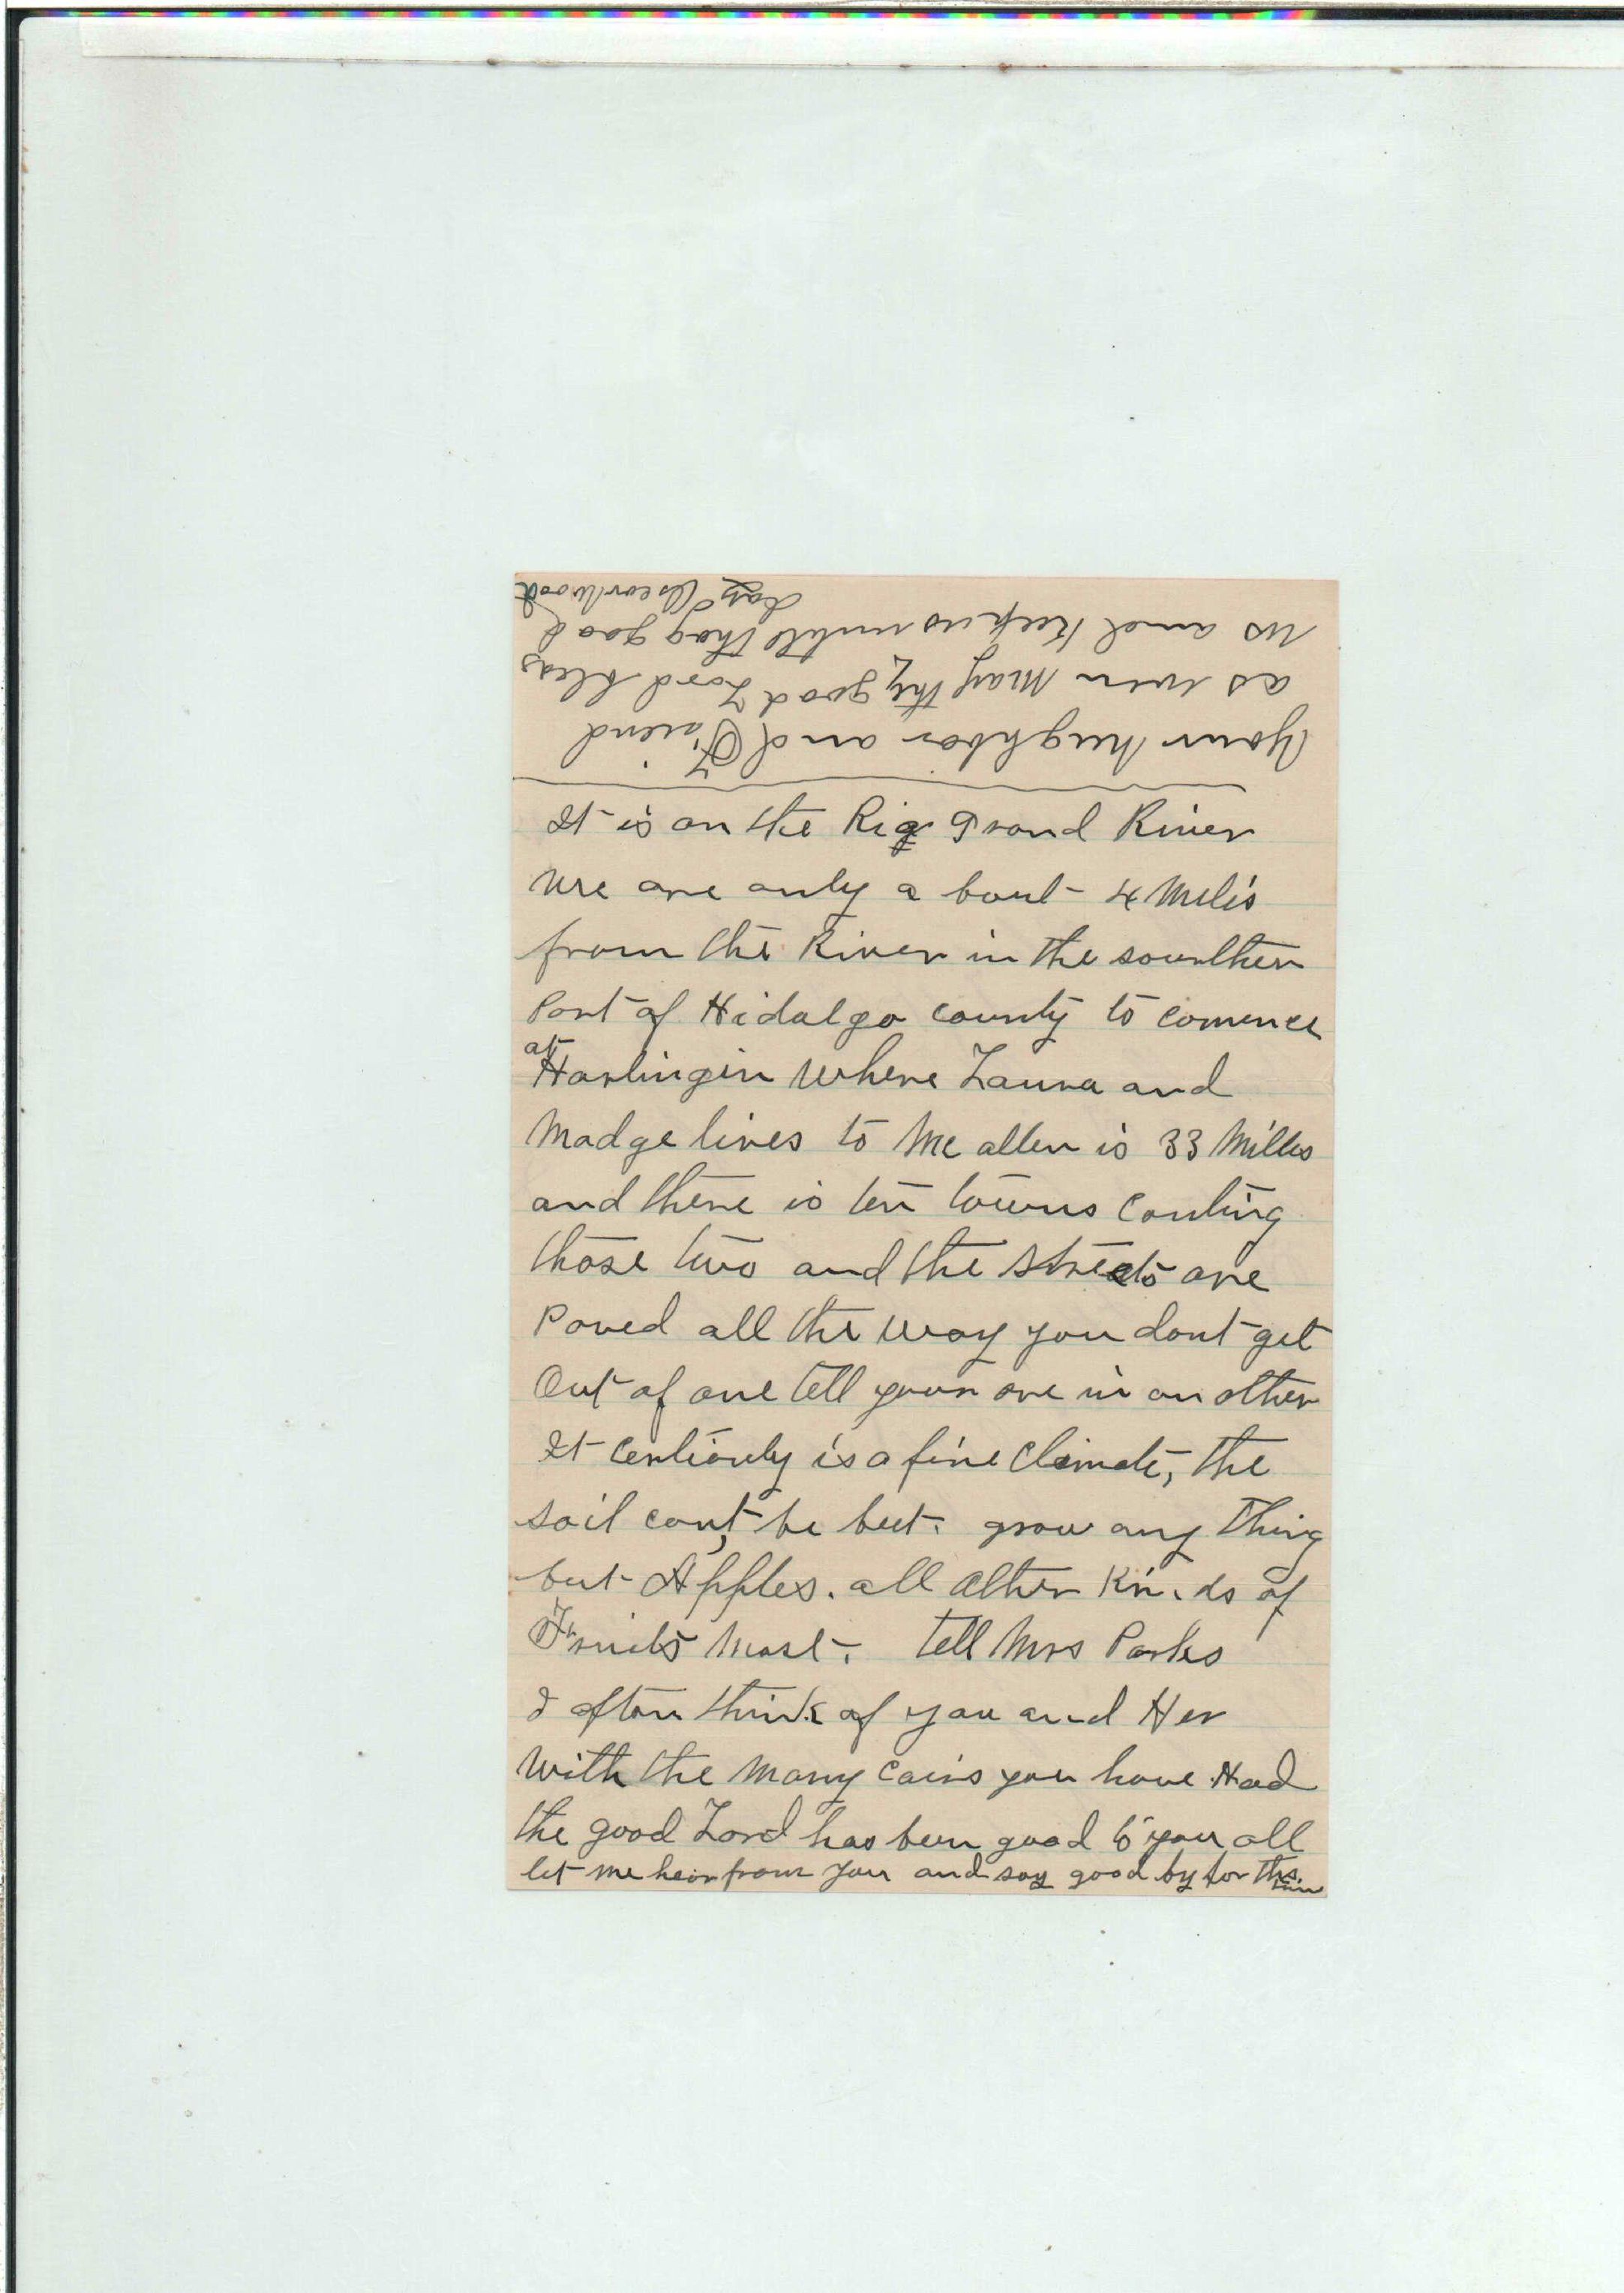 It is on the Rio Grand River
We are only a bout 4 Miles
from the River in the sourthern
Part of Hidalgo County to comence
at Harlingin Where Laura and
Madge lives to Mc allen is 33 Milles
and there is ten towns Conting
those two and the streets are
Paved all the way you dont get
Out of one tell your are in an other
It Certionly is a fine Climate, the
soil cant, be beet. grow any thing
but Apples. all other Kinds of
Fruits Most. tell Mrs Parks
I often think of you and Her
With the Many cairs you have Had
the good Lord has been good to you all
let me hear from you and say good by for this time
Your Neighbor and Friend
as ever May the good Lord bless
us and keep us untill that good
day